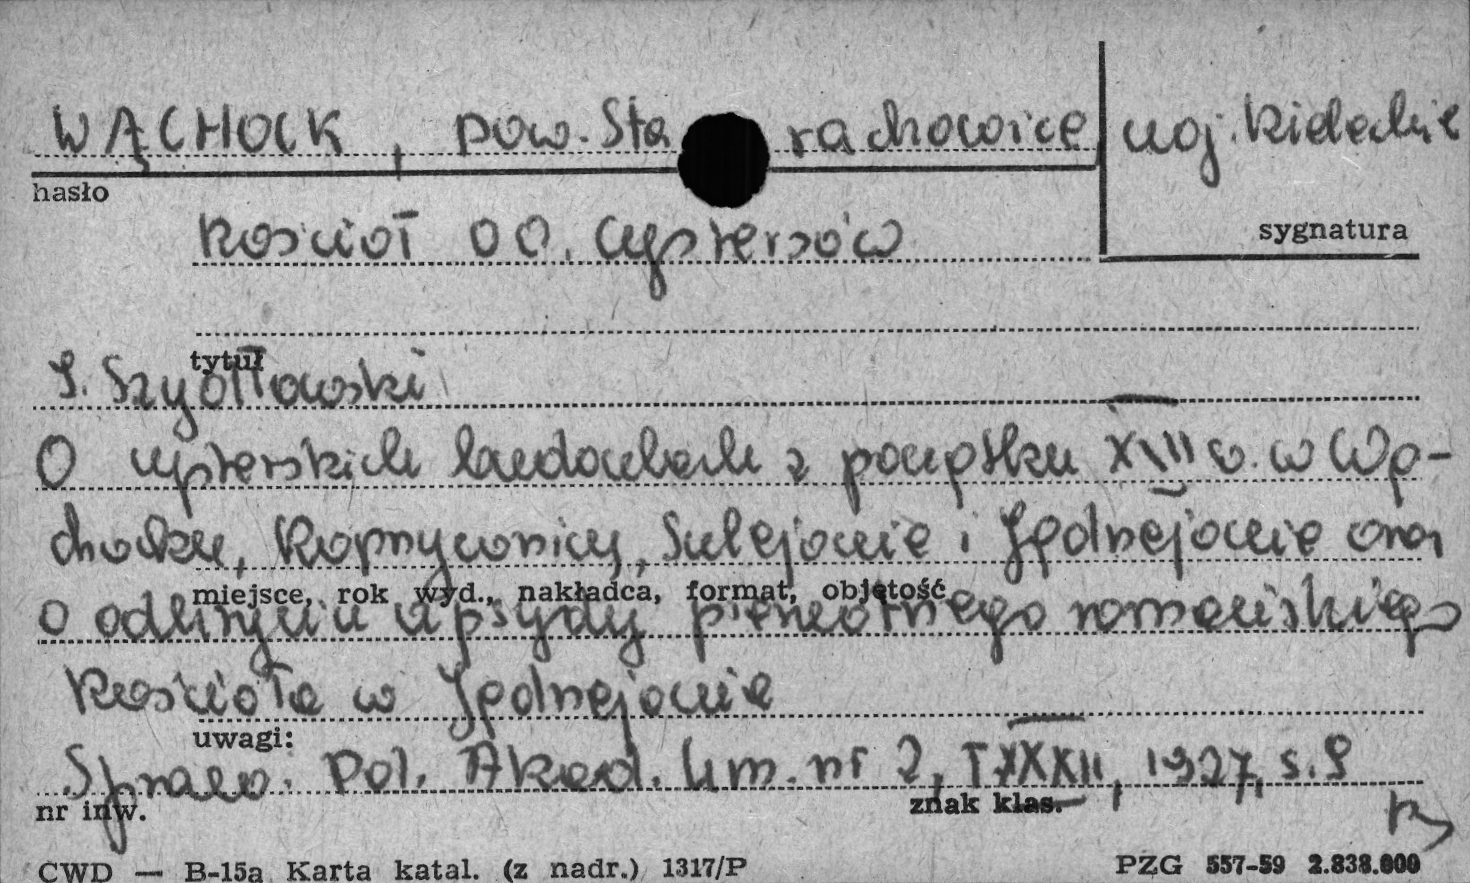 WĄCHOCK, pow. Starachowice woj. Kieleckie
hasło
Kościoł OO. Cystersów
sygnatura
tytuł
S. Szydłowski
O cysterskich budowlach z początku XIII w. w Wą-
chocku, Koprzywnicy, Sulejowie i Jędrzejowie oraz
miejsce, rok wyd., nakładca, format, objętość
o odkryciu apsydy pierwotnego romańskiego
Kościoła w Jędrzejowie
uwagi:
Spraw. Pol. Akad. Um. nr 2, T XXXII, 1927, s. 9
nr inw.
znak klas.
CWD — B-15a Karta katal. (z nadr.) 1317/P
PZG 557-59 2.838.000